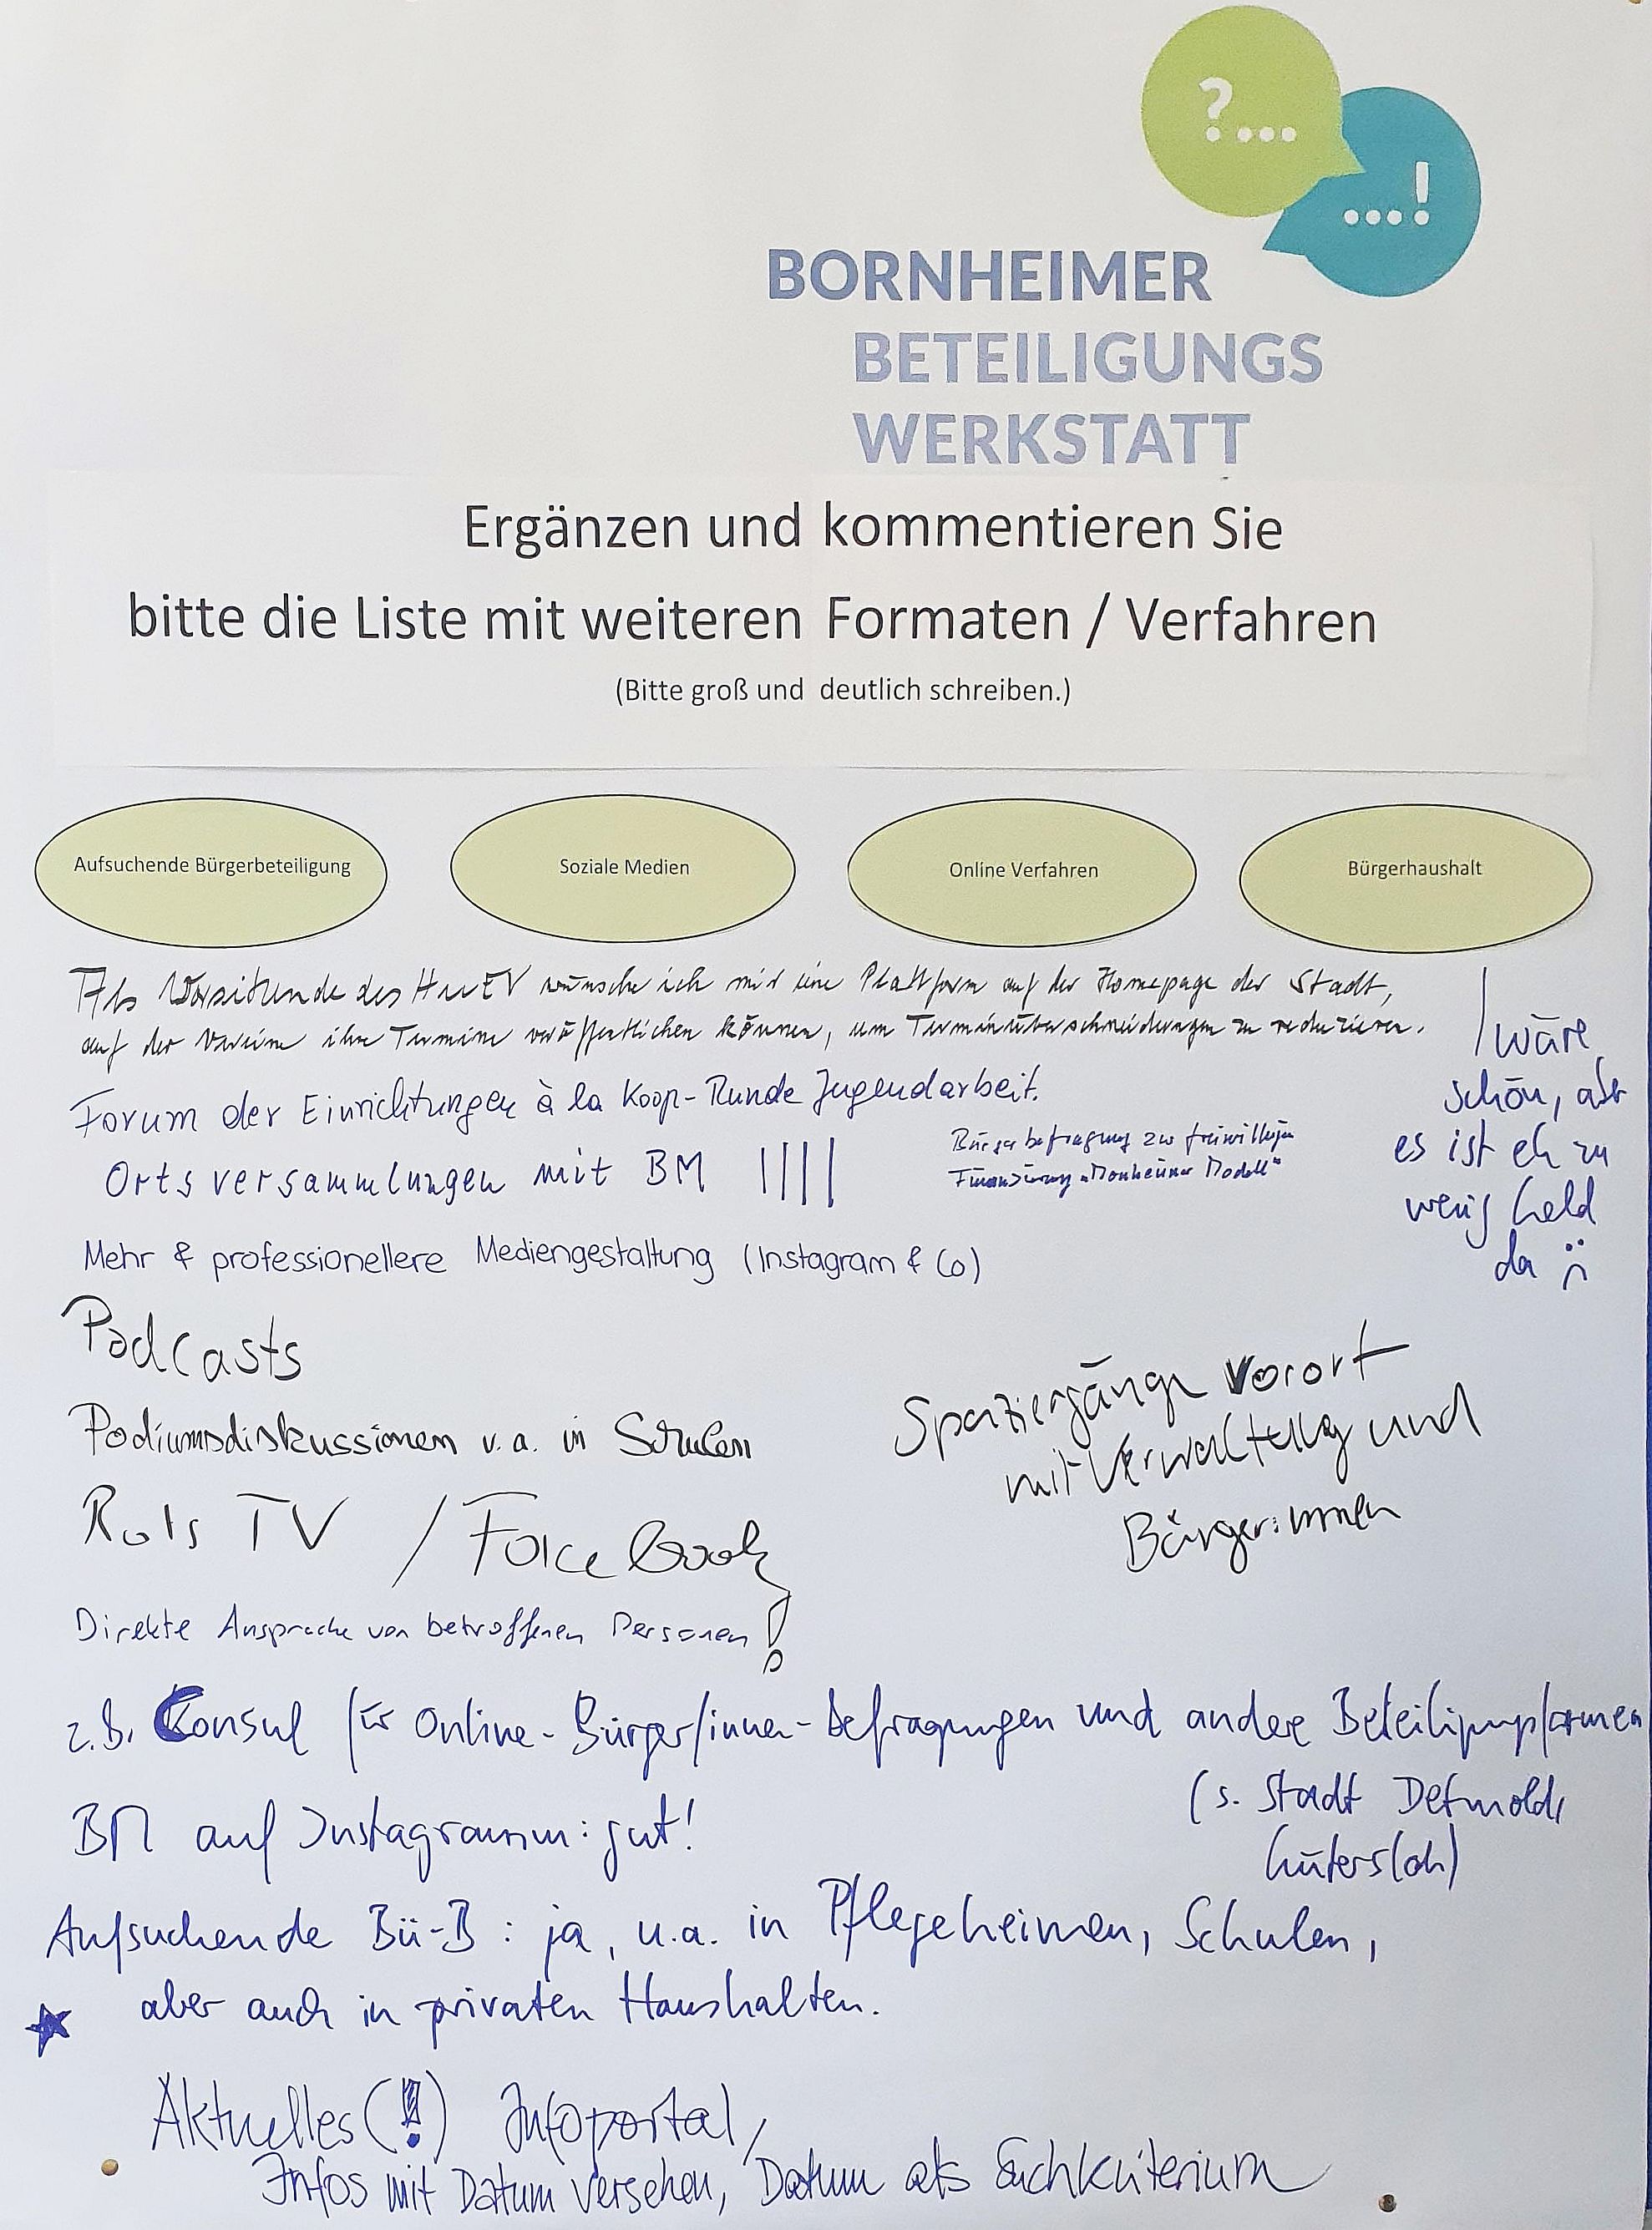 ?...
...!
BORNHEIMER
BETEILIGUNGS
WERKSTATT
Ergänzen und kommentieren Sie
bitte die Liste mit weiteren Formaten / Verfahren
(Bitte groß und deutlich schreiben.)
Aufsuchende Bürgerbeteiligung
Soziale Medien
Online Verfahren
Bürgerhaushalt
Als Vorsitzende des wünsche ich mir eine Plattform auf der Homepage der Stadt,
auf der Vereine ihre Termine veröffentlichen können, um Terminüberschneidungen zu reduzieren.
Forum der Einrichtungen à la Koop-Runde Jugendarbeit.
Ortsversammlungen mit BM ||||
Bürgerbefragung zur freiwilligen
Finanzierung „Monheimer Modell"
wäre
schön, aber
es ist eh zu
wenig Geld
da
Mehr & professionellere Mediengestaltung (Instagram & Co)
Podcasts
Podiumsdiskussionen v.a. in Schulen
Spaziergänge vorort
mit Verwaltung und
Bürger:innen
Rats TV / Facebook
Direkte Ansprache von betroffenen Personen!
z.B. Consul für Online-Bürger/innen-Befragungen und andere Beteiligungsformen
(s. Stadt Detmold,
Gütersloh)
BM auf Instagramm: gut!
Aufsuchende Bü-B: ja, u.a. in Pflegeheimen, Schulen,
aber auch in privaten Haushalten.
Aktuelles(!) Infoportal,
Infos mit Datum versehen, Datum als Suchkriterium